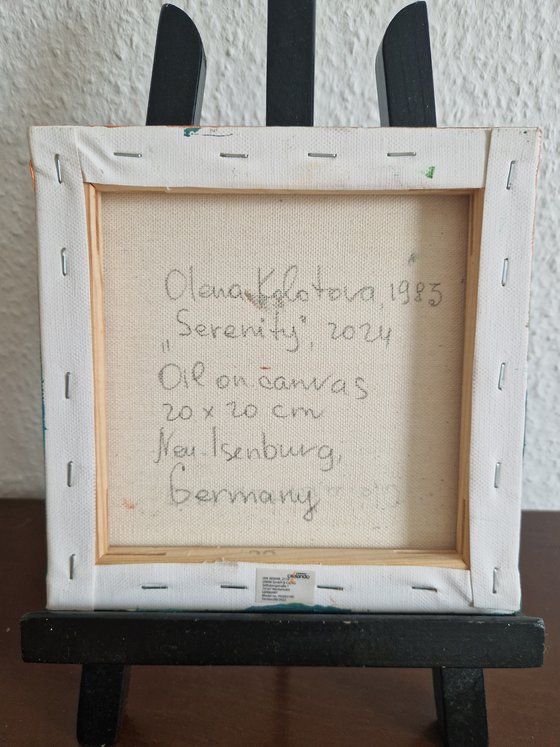 Olena Kolotova, 1983
„Serenity", 2024
Oil on canvas
20 x 20 cm
Neu-Isenburg,
Germany